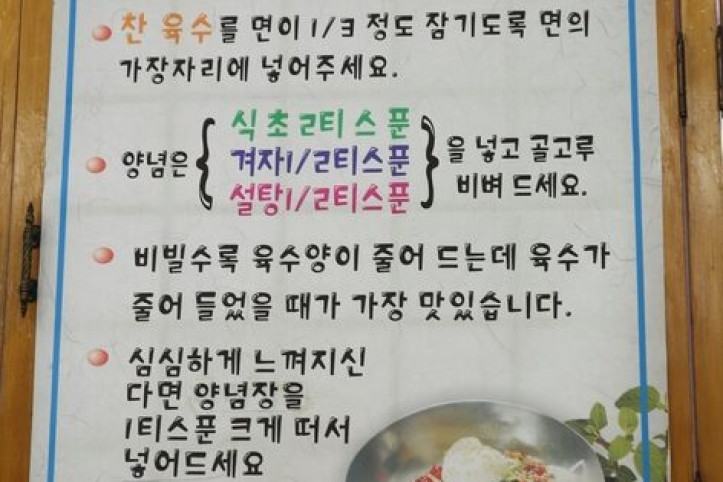 찬 육수를 면이 1/3 정도 잠기도록 면의
가장자리에 넣어주세요.
양념은 { 식초 2티스푼
겨자 1/2티스푼
설탕 1/2티스푼 } 을 넣고 골고루
비벼 드세요.
비빌수록 육수양이 줄어 드는데 육수가
줄어 들었을 때가 가장 맛있습니다.
심심하게 느껴지신
다면 양념장을
1티스푼 크게 떠서
넣어드세요